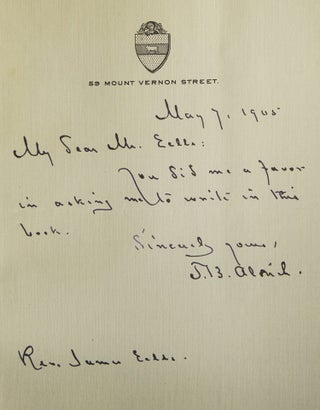 59 MOUNT VERNON STREET.
May 7, 1905
My Dear Mr. Eells:
You did me a favor
in asking me to write in this
book.
Sincerely yours,
T.B. Aldrich.
Rev. James Eells.